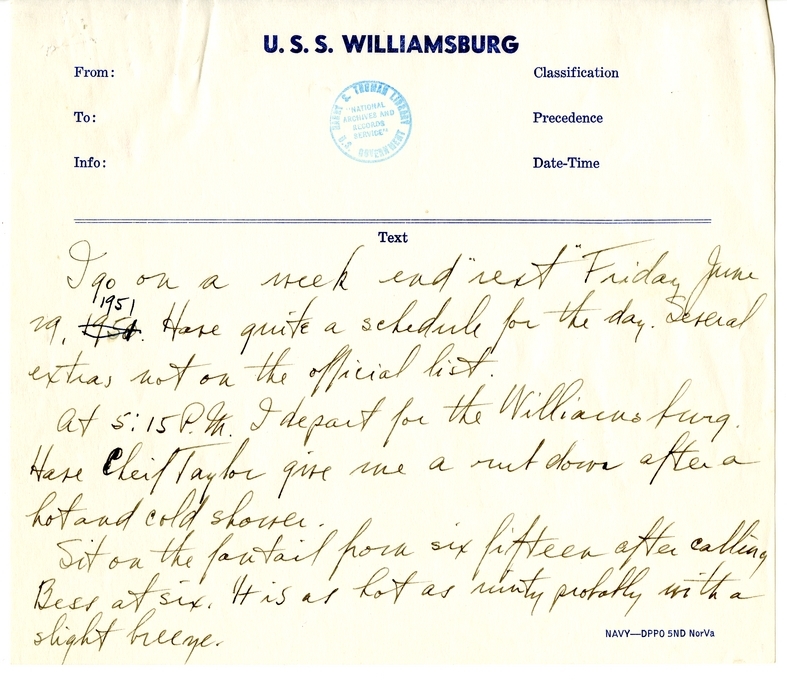 U. S. S. WILLIAMSBURG
From:
Classification
HARRY S. TRUMAN LIBRARY
"NATIONAL
ARCHIVES AND
RECORDS
SERVICE"
U.S. GOVERNMENT
To:
Precedence
Info:
Date-Time
Text
I go on a week end "rest" Friday June
1951
29, 1951. Have quite a schedule for the day. Several
extras not on the official list.
At 5:15 P.M. I depart for the Williamsburg.
Have Cheif Taylor give me a rub down after a
hot and cold shower.
Sit on the fantail from six fifteen after calling
Bess at six. It is as hot as ninty probably with a
slight breeze.
NAVY—DPPO 5ND NorVa